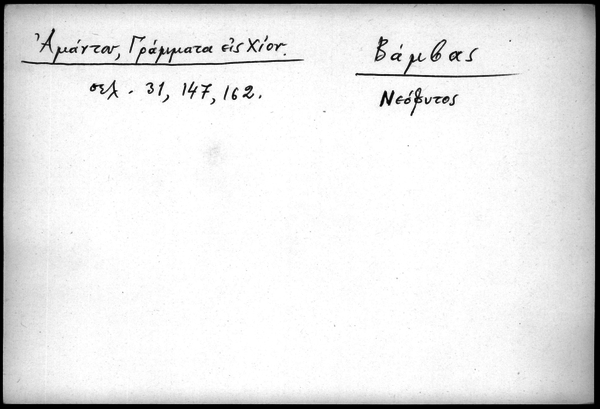 Ἀμάντου, Γράμματα εἰς Χίον.
σελ. 31, 147, 162.
Βάμβας
Νεόφυτος